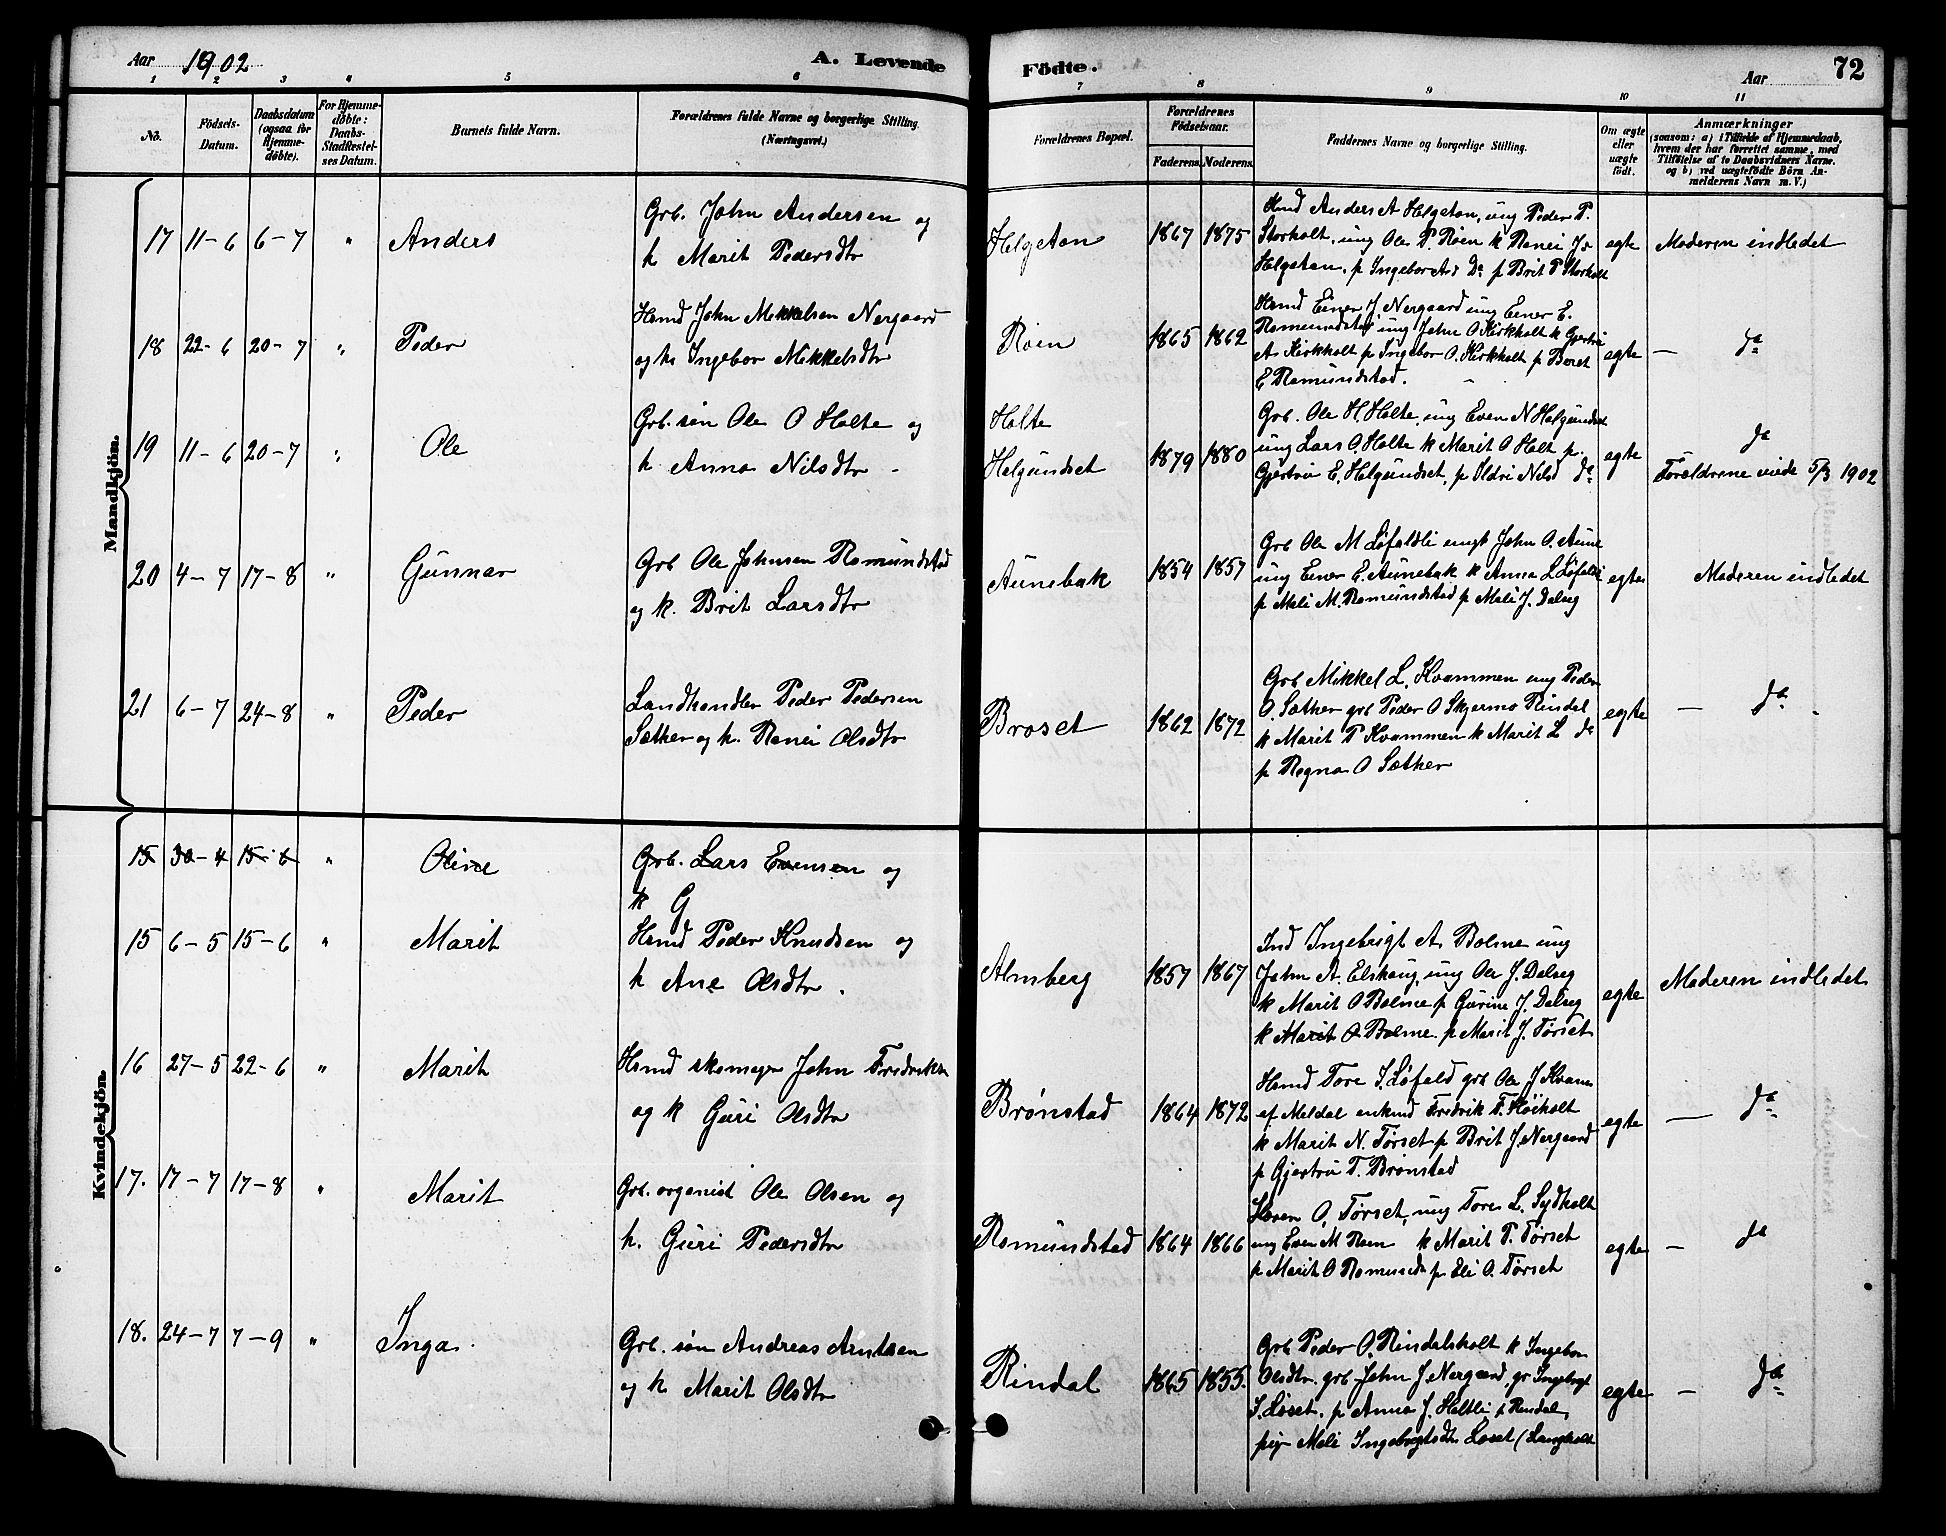 Aar 1902
A. Levende
Födte.
Aar
72
1 2 3 4 5 6 7 8 9 10 11
No.
Födsels-Datum.
Daabsdatum (ogsaa for Hjemme-døbte).
For Hjemme-døbte: Daabs-Stadfæstel-ses Datum.
Barnets fulde Navn.
Forældrenes fulde Navne og borgerlige Stilling. (Næringsvei.)
Forældrenes Bopæl.
Forældrenes Födselsaar.
Faderens. Moderens.
Faddernes Navne og borgerlige Stilling.
Om ægte eller uægte födt.
Anmærkninger
(saasom: a) i Tilfælde af Hjemmedaab,
hvem der har forrettet samme, med
Tilföielse af to Daabsvidners Navne.
og b) ved uægtefödte Börn An-
melderens Navn m. V.)
Mandkjön.
17 11-6 6-7 " Anders
Grb. John Andersen og
k Marit Pedersdtr
Helgetan 1867 1875
Hmd Anders A Helgetan, ung Peder P.
Storholt, ung Ole P. Røen k Ranei Js
Helgetan, p Ingebor And Do p Brit P Storholt
egte Moderen indledet
18 22-6 20-7 " Peder
Hsmd John Mikkelsen Nergaard
og k Ingebor Mikkelsdtr
Røen 1865 1862
Hsmd Einer J. Nergaard ung Einer E.
Romundstad ung John O Kirkholt k Gjertru
A Kirkholt p Ingebor O. Kirkholt p Beret
E Romundstad.
egte — do
19 11-6 20-7 " Ole
Grb. søn Ole O Holte og
k Anna Nilsdtr -
Holte
Helgundset 1879 1880
Grb. Ole H Holte, ung Even N Helgundset
ung Lars O. Holte k Marit O Holt p.
Gjertru E. Helgundset, p Ildri Nilsd do
egte do
Foreldrene viede 5/3 1902
20 4-7 17-8 " Gunnar
Grb Ole Johnsen Romundstad
og k. Brit Larsdtr
Aunebak 1854 1857
Grb Ole M Løfaldli ungk John O. Aune
ung Einer E. Aunebak k Anna L Løfaldli
p Mali M. Romundstad p Mali J. Dalseg
egte Moderen indledet
21 6-7 24-8 " Peder
Landhandler Peder Pedersen
Sæther og k. Ranei Olsdtr
Broset 1862 1872
Grb Mikkel L. Kvammen ung Peder
O. Sæther grb Peder O Skjermo Rindal
k Marit P Kvammen k Marit L do
p Ragna O Sæther
egte — do.
Kvindekjön.
15 30-4 15-6 " Oline
Grb. Lars Evensen og
k G
15 6-5 15-6 " Marit
Hsmd Peder Knudsen og
k Ane Olsdtr.
Almberg 1857 1867
Ind Ingebrigt A. Bolme ung
John A. Elshaug, ung Ole J. Dalseg
k Marit O Bolme p Gurine J. Dalseg
k Marit O Bolme p Marit J. Tørset
egte Moderen indledet
16 27-5 22-6 " Marit
Hsmd skomager John Fredriksen
og k Guri Olsdtr
Brønstad 1864 1872
Hsmd Tore S. Løfald grb Ole J Kvam
af Meldal enkmd Fredrik T. Høiholt
k Marit N. Tørset p Brit J. Nergaard
p Gjertru T. Brønstad
egte — do
17. 17-7 17-8 " Marit
Grb. organist Ole Olsen og
k. Guri Pedersdtr
Romundstad 1864 1866
O. Tørset, ung Tore L. Sydholt
ung Even M Røen k Marit P. Tørset
p Marit O Romunds p. Eli O. Tørset
egte — do
18. 24-7 7-9 " Inga.
Grb. søn Andreas Arntsen
og k Marit Olsdtr
Rindal 1865 1855.
Grb Peder O. Rindalsholt k Ingebor
Olsdtr. grb John J Nergaard, gr Ingebrgt
S. Løset, p Anna J. Holtli, p Rindal,
pige Mali Ingebrigtsdtr Løset (Langholt
egte — do